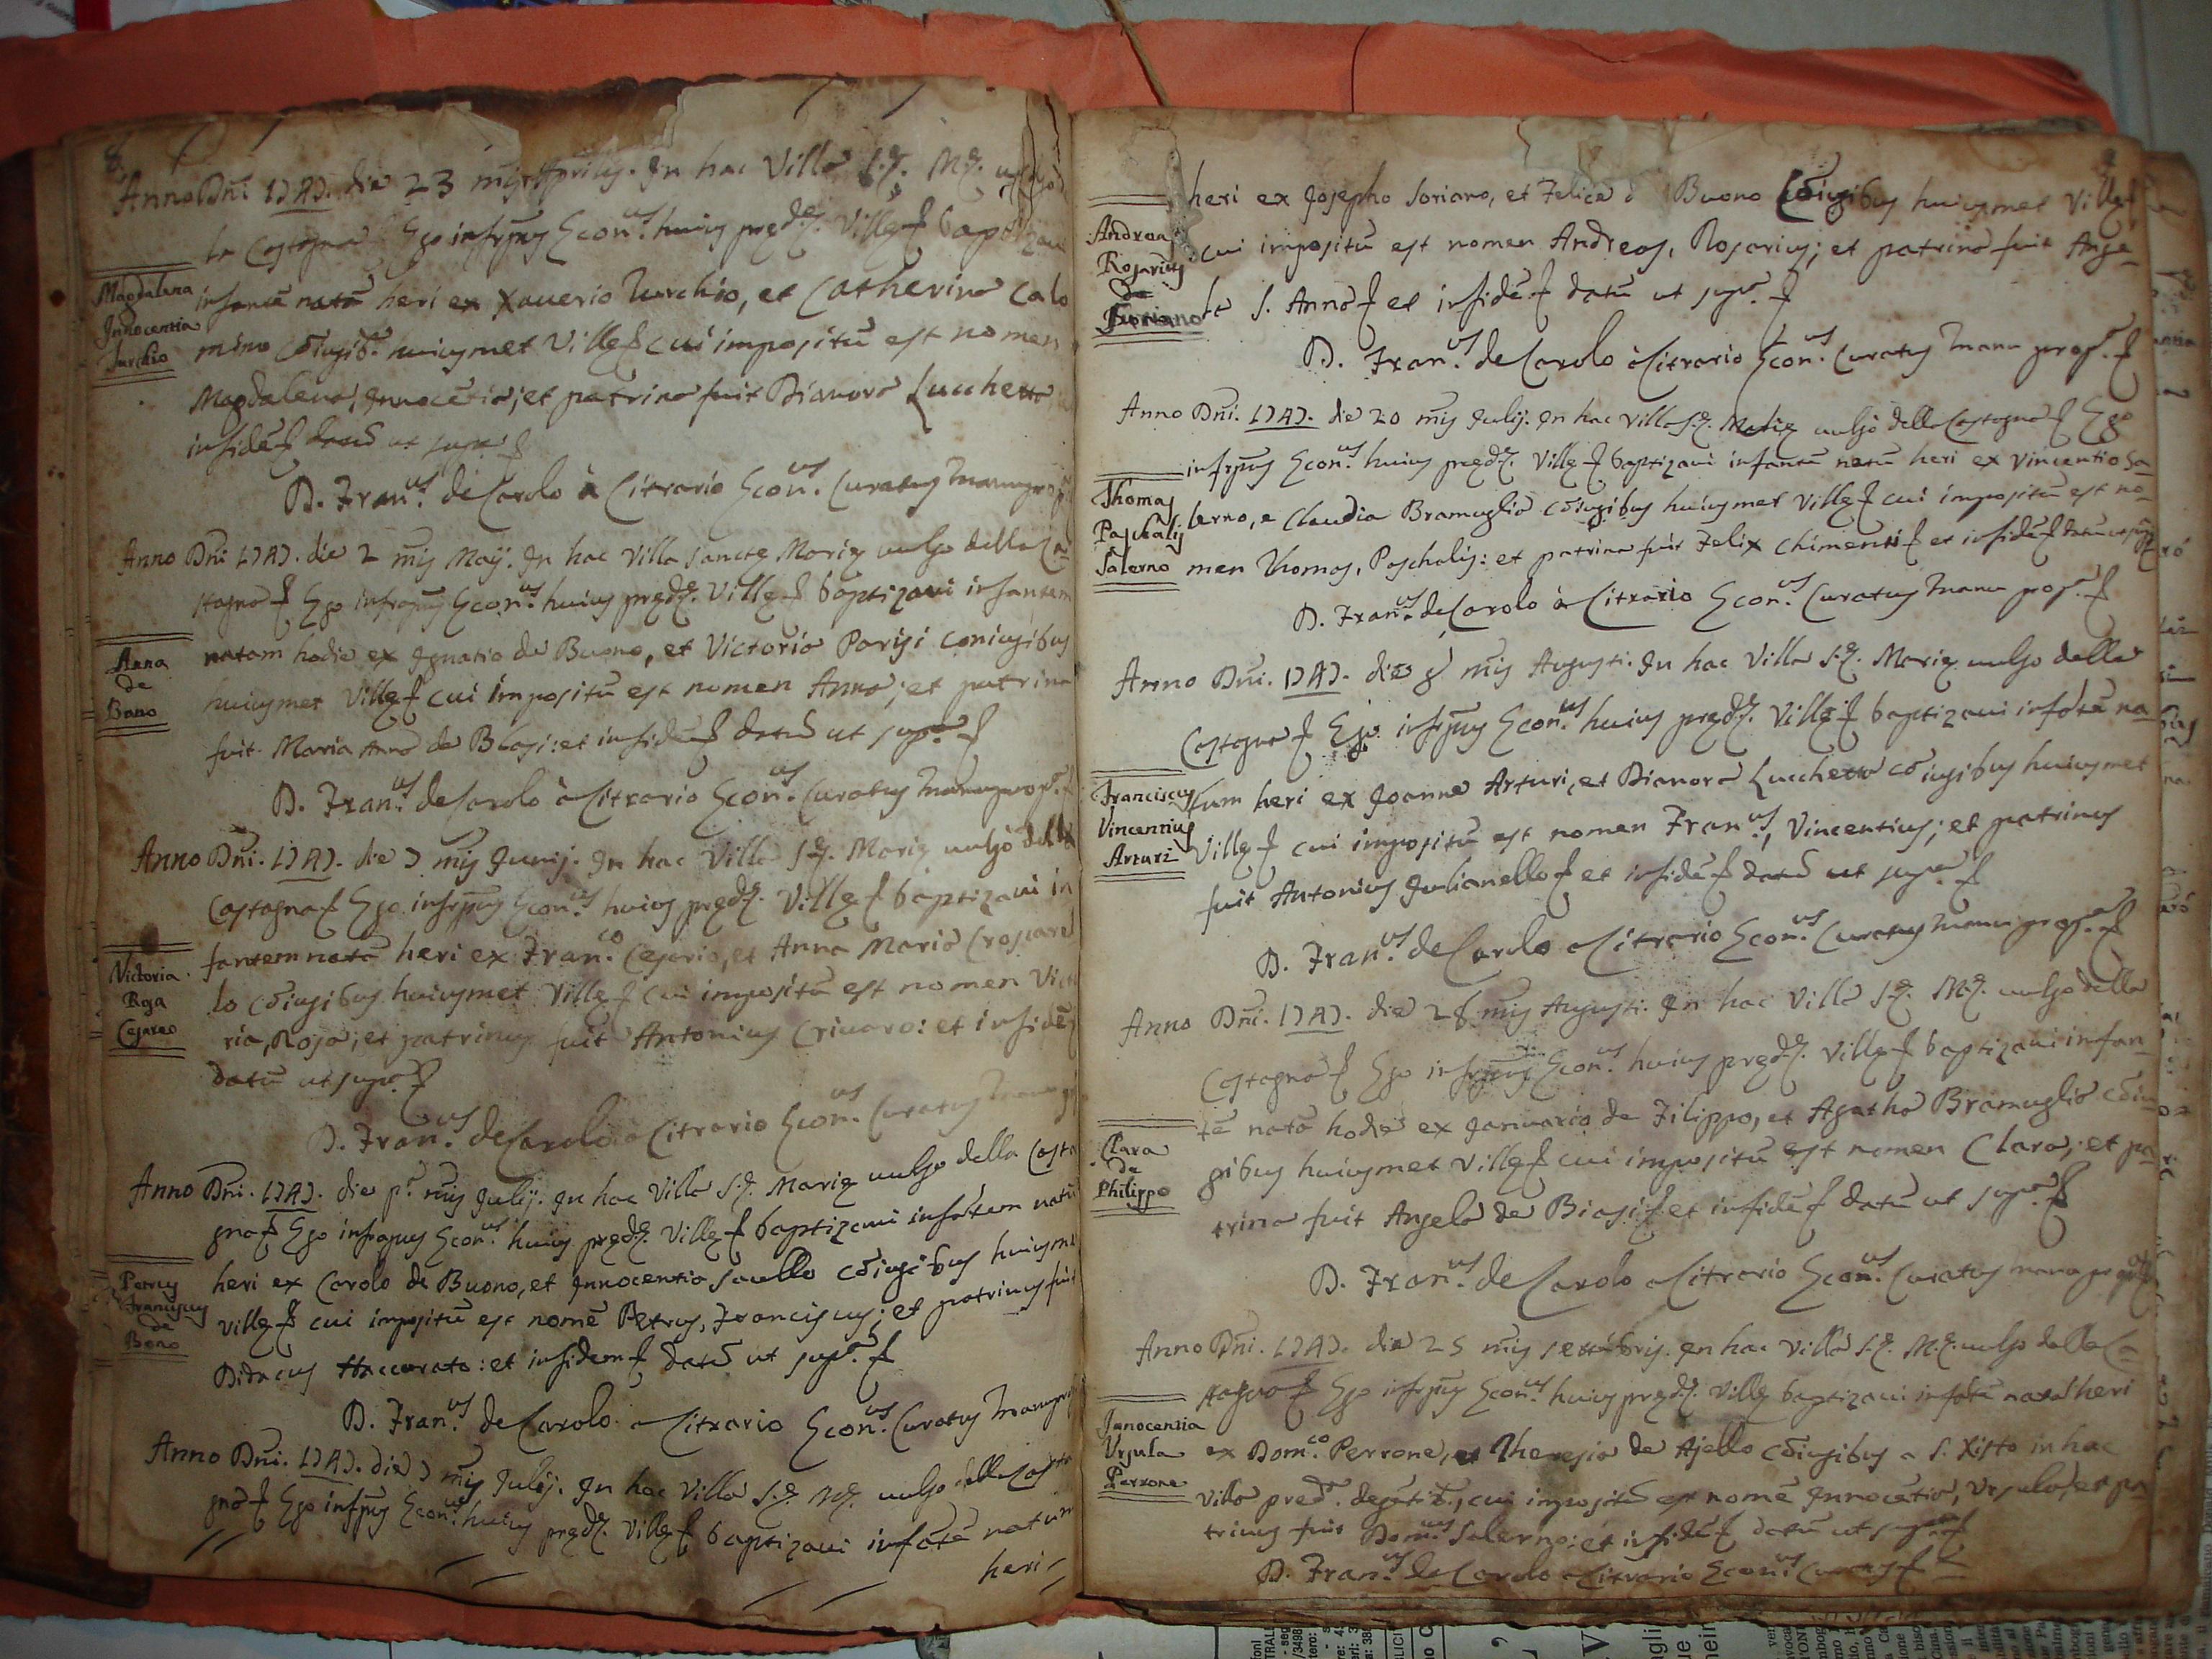 Anno Dñi 1747. die 23 mẽsis Aprilis. In hac Villa S.æ M.æ vulgo del
la Castagna Ego infrꝑus Econ.us huius prædæ Villæ baptizavi
Magdalena
Innocentia
Turchio
infantẽ natã heri ex Xaverio Turchio, et Catherina Colo
mino cõiugib. huiusmet Villæ cui impositũ est nomen
Magdalena, Innocẽtia; et patrina fuit Dianora Lucchetta
in fidẽ datũ ut supra
D. Fran.us de Carolo à Citrario Econ.us Curatus manu prop.
Anno Dñi 1747. die 2 mẽsis Maÿ. In hac Villa Sanctæ Mariæ vulgo della Ca
stagna Ego infraꝑus Econ.us huius prædæ. Villæ baptizavi infantem
Anna
de
Bono
natam hodie ex Ignatio de Buono, et Victoria Parisi coniugibus
huiusmet Villæ cui impositũ est nomen Anna; et patrina
fuit Maria Anna de Blasi: et in fidẽ datũ ut supra
D. Fran.us de Carolo à Citrario Econ.us Curatus manu prop.
Anno Dñi. 1747. die 7 mẽsis Junij. In hac Villa S.æ Mariæ vulgò della
Castagna Ego infrꝑus Econ.us huius prædæ. Villæ baptizavi in
Victoria
Rosa
Cesario
fantem natã heri ex Fran.co Cesario, et Anna Maria Croscarel
lo cõiugibus huiusmet Villæ cui impositũ est nomen Victo
ria, Rosa; et patrinus fuit Antonius Crivaro: et in fidẽ
datũ ut supra
D. Fran.us de Carolo à Citrario Econ.us Curatus manu
Anno Dñi. 1747. die p.a mẽsis Julij. In hac Villa S.æ Mariæ vulgo della Casta
gna Ego infraꝑus Econ.us huius prædæ. Villæ baptizavi infãtem natũ
Petrus
Franciscus
de
Bono
heri ex Carolo de Buono, et Innocentia Scuello cõiugibus huiusmet
Villæ cui impositũ est nomẽ Petrus, Franciscus; et patrinus fuit
Didacus Haccurato: et in fidem datũ ut supra
D. Fran.us de Carolo à Citrario Econ.us Curatus manu prop
Anno Dñi. 1747. die 7 mẽsis Julij. In hac Villa S.æ M.æ vulgo della Casta
gna Ego infrꝑus Econ.us huius prædæ. Villæ baptizavi infãtẽ natum
heri
heri ex Josepho Soriano, et Felice d Buono Cõiugibus huiusmet Villæ
Andreas
Rosarius
de
Soriano
cui impositũ est nomen Andreas, Rosarius; et patrina fuit Ange
la S. Anna et in fidẽ datũ ut supra
D. Fran.us de Carolo à Citrario Econ.us Curatus manu prop.
Anno Dñi. 1747. die 20 mẽsis Julij. In hac Villa S.æ Mariæ vulgò della Castagna Ego
infrꝑus Econ.us huius prædæ. Villæ baptizavi infantẽ natũ heri ex Vincentio Sa
Thomas
Paschalis
Salerno
lerno, e Claudia Bramuglia cõiugibus huiusmet Villæ cui impositũ est no
men Thomas, Paschalis: et patrina fuit Felix Chimenti et in fidẽ datũ ut supra
D. Fran.us de Carolo à Citrario Econ.us Curatus manu prop.
Anno Dñi. 1747. die 8 mẽsis Augusti. In hac Villa S.æ Mariæ vulgo della
Castagna Ego infrꝑus Econ.us huius prædæ. Villæ baptizavi infãtẽ na
Franciscus
Vincentius
Arturi
tum heri ex Joanne Arturi, et Dianora Lucchetta cõiugibus huiusmet
Villæ cui impositũ est nomen Fran.us, Vincentius; et patrinus
fuit Antonius Julianello et in fidẽ datũ ut supra
D. Fran.us de Carolo à Citrario Econ.us Curatus manu prop.
Anno Dñi. 1747. die 28 mẽsis Augusti. In hac Villa S.æ M.æ vulgo della
Castagna Ego infrꝑus Econ.us huius prædæ. Villæ baptizavi infan
Clara
de
Philippo
tẽ natã hodie ex Januario de Filippo, et Agatha Bramuglia cõiu
gibus huiusmet Villæ cui impositũ est nomen Clara; et pa
trina fuit Angela de Biasi et in fidẽ datũ ut supra
D. Fran.us de Carolo à Citrario Econ.us Curatus manu prop
Anno Dñi. 1747. die 25 mẽsis settẽbris. In hac Villa S.æ M.æ vulgo della Ca
stagna Ego infrꝑus Econ.us huius prædæ. Villæ baptizavi infãtẽ natã heri
Innocentia
Ursula
Perrone
ex Dom.co Perrone, et Theresia de Ajello cõiugibus a S. Xisto in hac
Villa præd.a degẽtib., cui impositũ est nomẽ Innocẽtia, Ursula, et pa
trinus fuit Dom.us Salerno: et in fidẽ datũ ut supra
D. Fran.us de Carolo à Citrario Econ.us Curatus